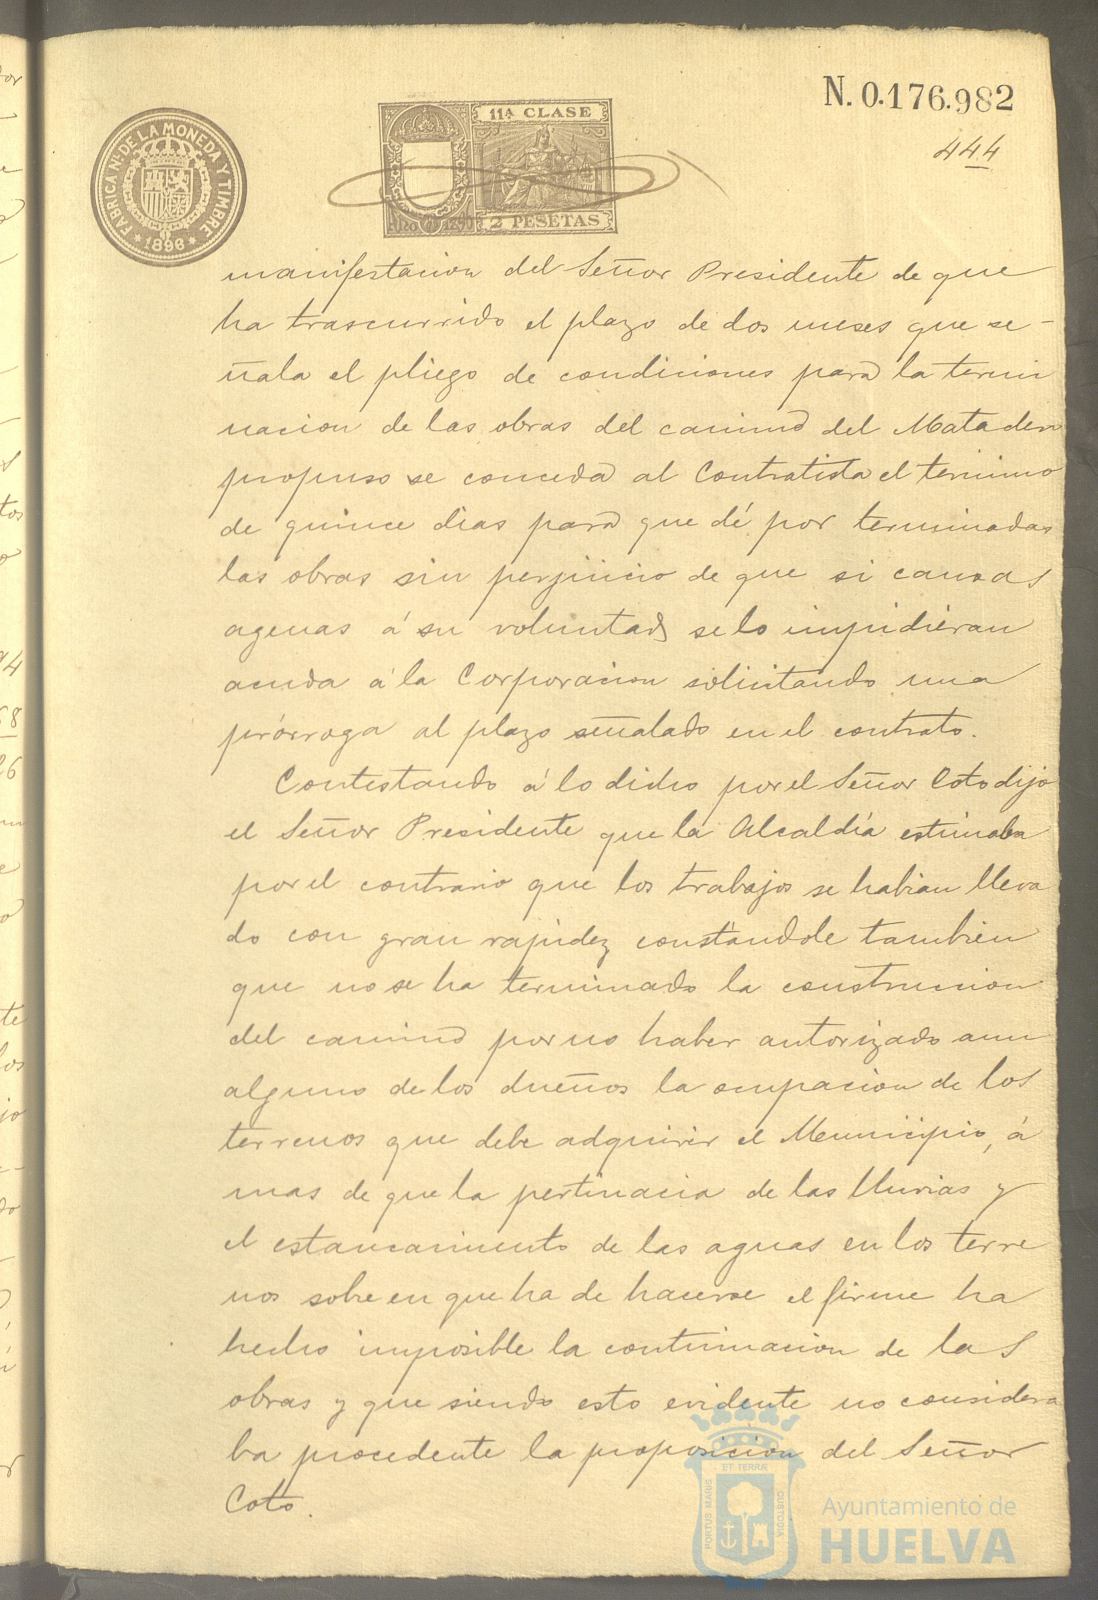 N. 0.176.982
444
FABRICA NL. DE LA MONEDA Y TIMBRE
1896
11ª CLASE
2 PESETAS
manifestacion del Señor Presidente de que
ha trascurrido el plazo de dos meses que se-
ñala el pliego de condiciones para la termi
nacion de las obras del camino del Matadero
propuso se conceda al Contratista el termino
de quince dias para que dé por terminadas
las obras sin perjuicio de que si causas
agenas á su voluntad se lo impidieran
acuda á la Corporacion solicitando una
prórroga al plazo señalado en el contrato.
Contestando á lo dicho por el Señor Coto dijo
el Señor Presidente que la Alcaldía estimaba
por el contrario que los trabajos se habian lleva
do con gran rapidez constándole tambien
que no se ha terminado la construccion
del camino por no haber autorizado aun
alguno de los dueños la ocupacion de los
terrenos que debe adquirir el Municipio, á
mas de que la pertinacia de las lluvias y
el estancamiento de las aguas en los terre
nos sobre en que ha de hacerse el firme ha
hecho imposible la continuacion de las
obras y que siendo esto evidente no considera
ba procedente la proposicion del Señor
Coto.
PORTUS MARIS ET TERRÆ CUSTODIA
Ayuntamiento de
HUELVA